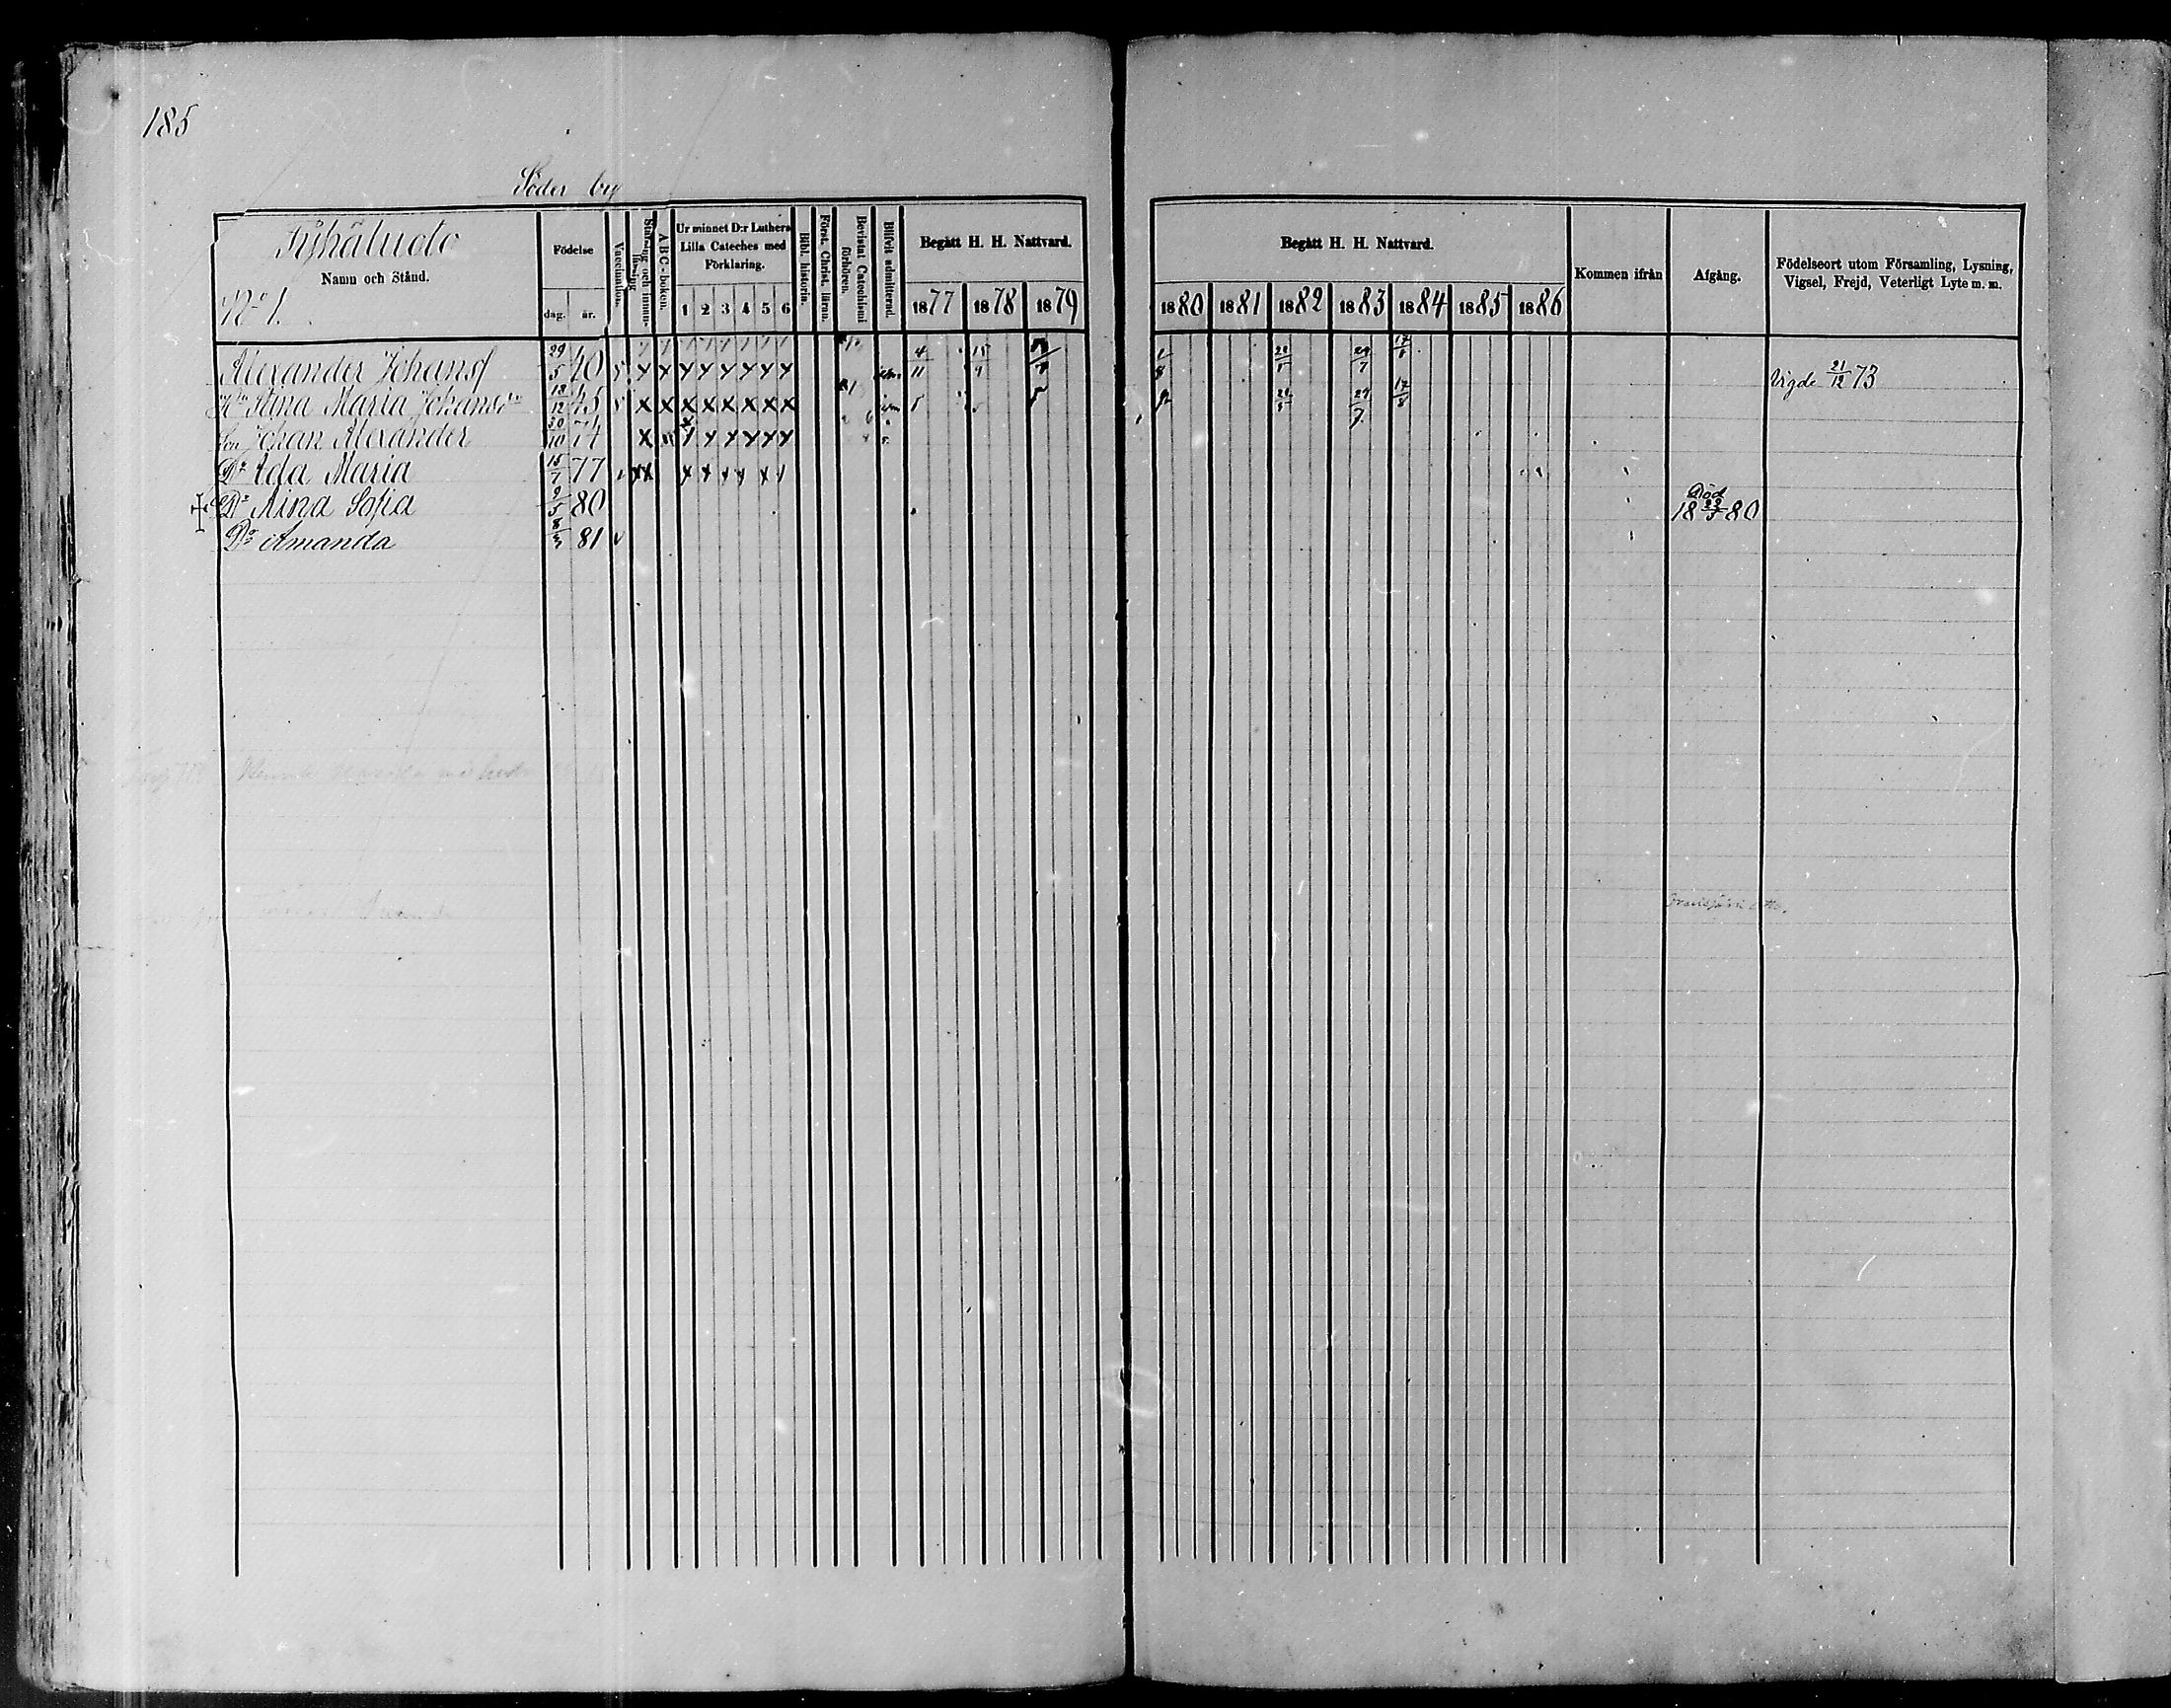 185
Söder by
Namn och Stånd.
No 1.
Födelse
dag. år.
Vaccination.
Stafning och innan-läsning
A B C-boken.
Ur minnet D:r Luthers
Lilla Cateches med
Förklaring.
1 2 3 4 5 6
Bibl. historia.
Först. Christ. läran.
Bevistat Catechismi
förhören.
Blifvit admitterad.
Begått H. H. Nattvard.
1877 1878 1879
Begått H. H. Nattvard.
1880 1881 1882 1883 1884 1885 1886
Kommen ifrån
Afgång.
Födelseort utom Församling, Lysning,
Vigsel, Frejd, Veterligt Lyte m. m.
Alexander Johansf 29/5 40 x x x x x x x x 4/11 15/9 28/ 29/7 17/8 Vigde 21/12 73
Stina Maria Johansdr 13/12 45 x x x x x x x x 28/ 29/7 17/8
Son Johan Alexander 30/10 74 x x x x x x
Dr Ida Maria 15/7 77 x x x x x x x
Dr Aina Sofia 9/5 80 Död 18 22/5 80
Dr Amanda 8/3 81 v